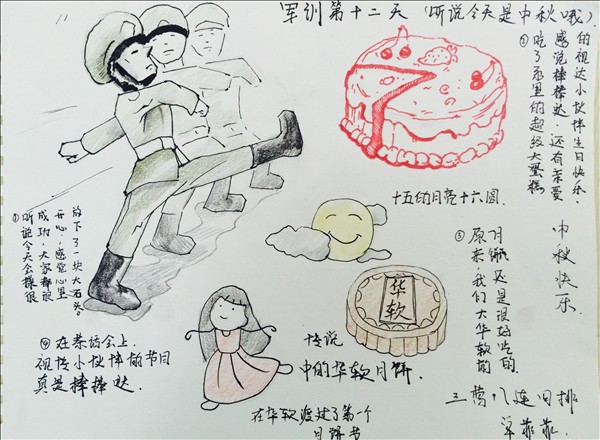 军训第十二天（听说今天是中秋哦）.
① 听说今天会操很
成功，大家都很
开心，感觉心里
放下了一块大石头。
② 吃了系里的超级大蛋糕
感觉棒棒哒，还有亲爱
的视传小伙伴生日快乐.
十五的月亮十六圆.
③ 原来，我们大华软的
月饼还是很好吃的
中秋快乐.
华软
传说
中的华软月饼.
④ 在茶话会上.
视传小伙伴的节目
真是棒棒哒.
在华软渡过了第一个
月饼节
三营八连四排
菲菲.